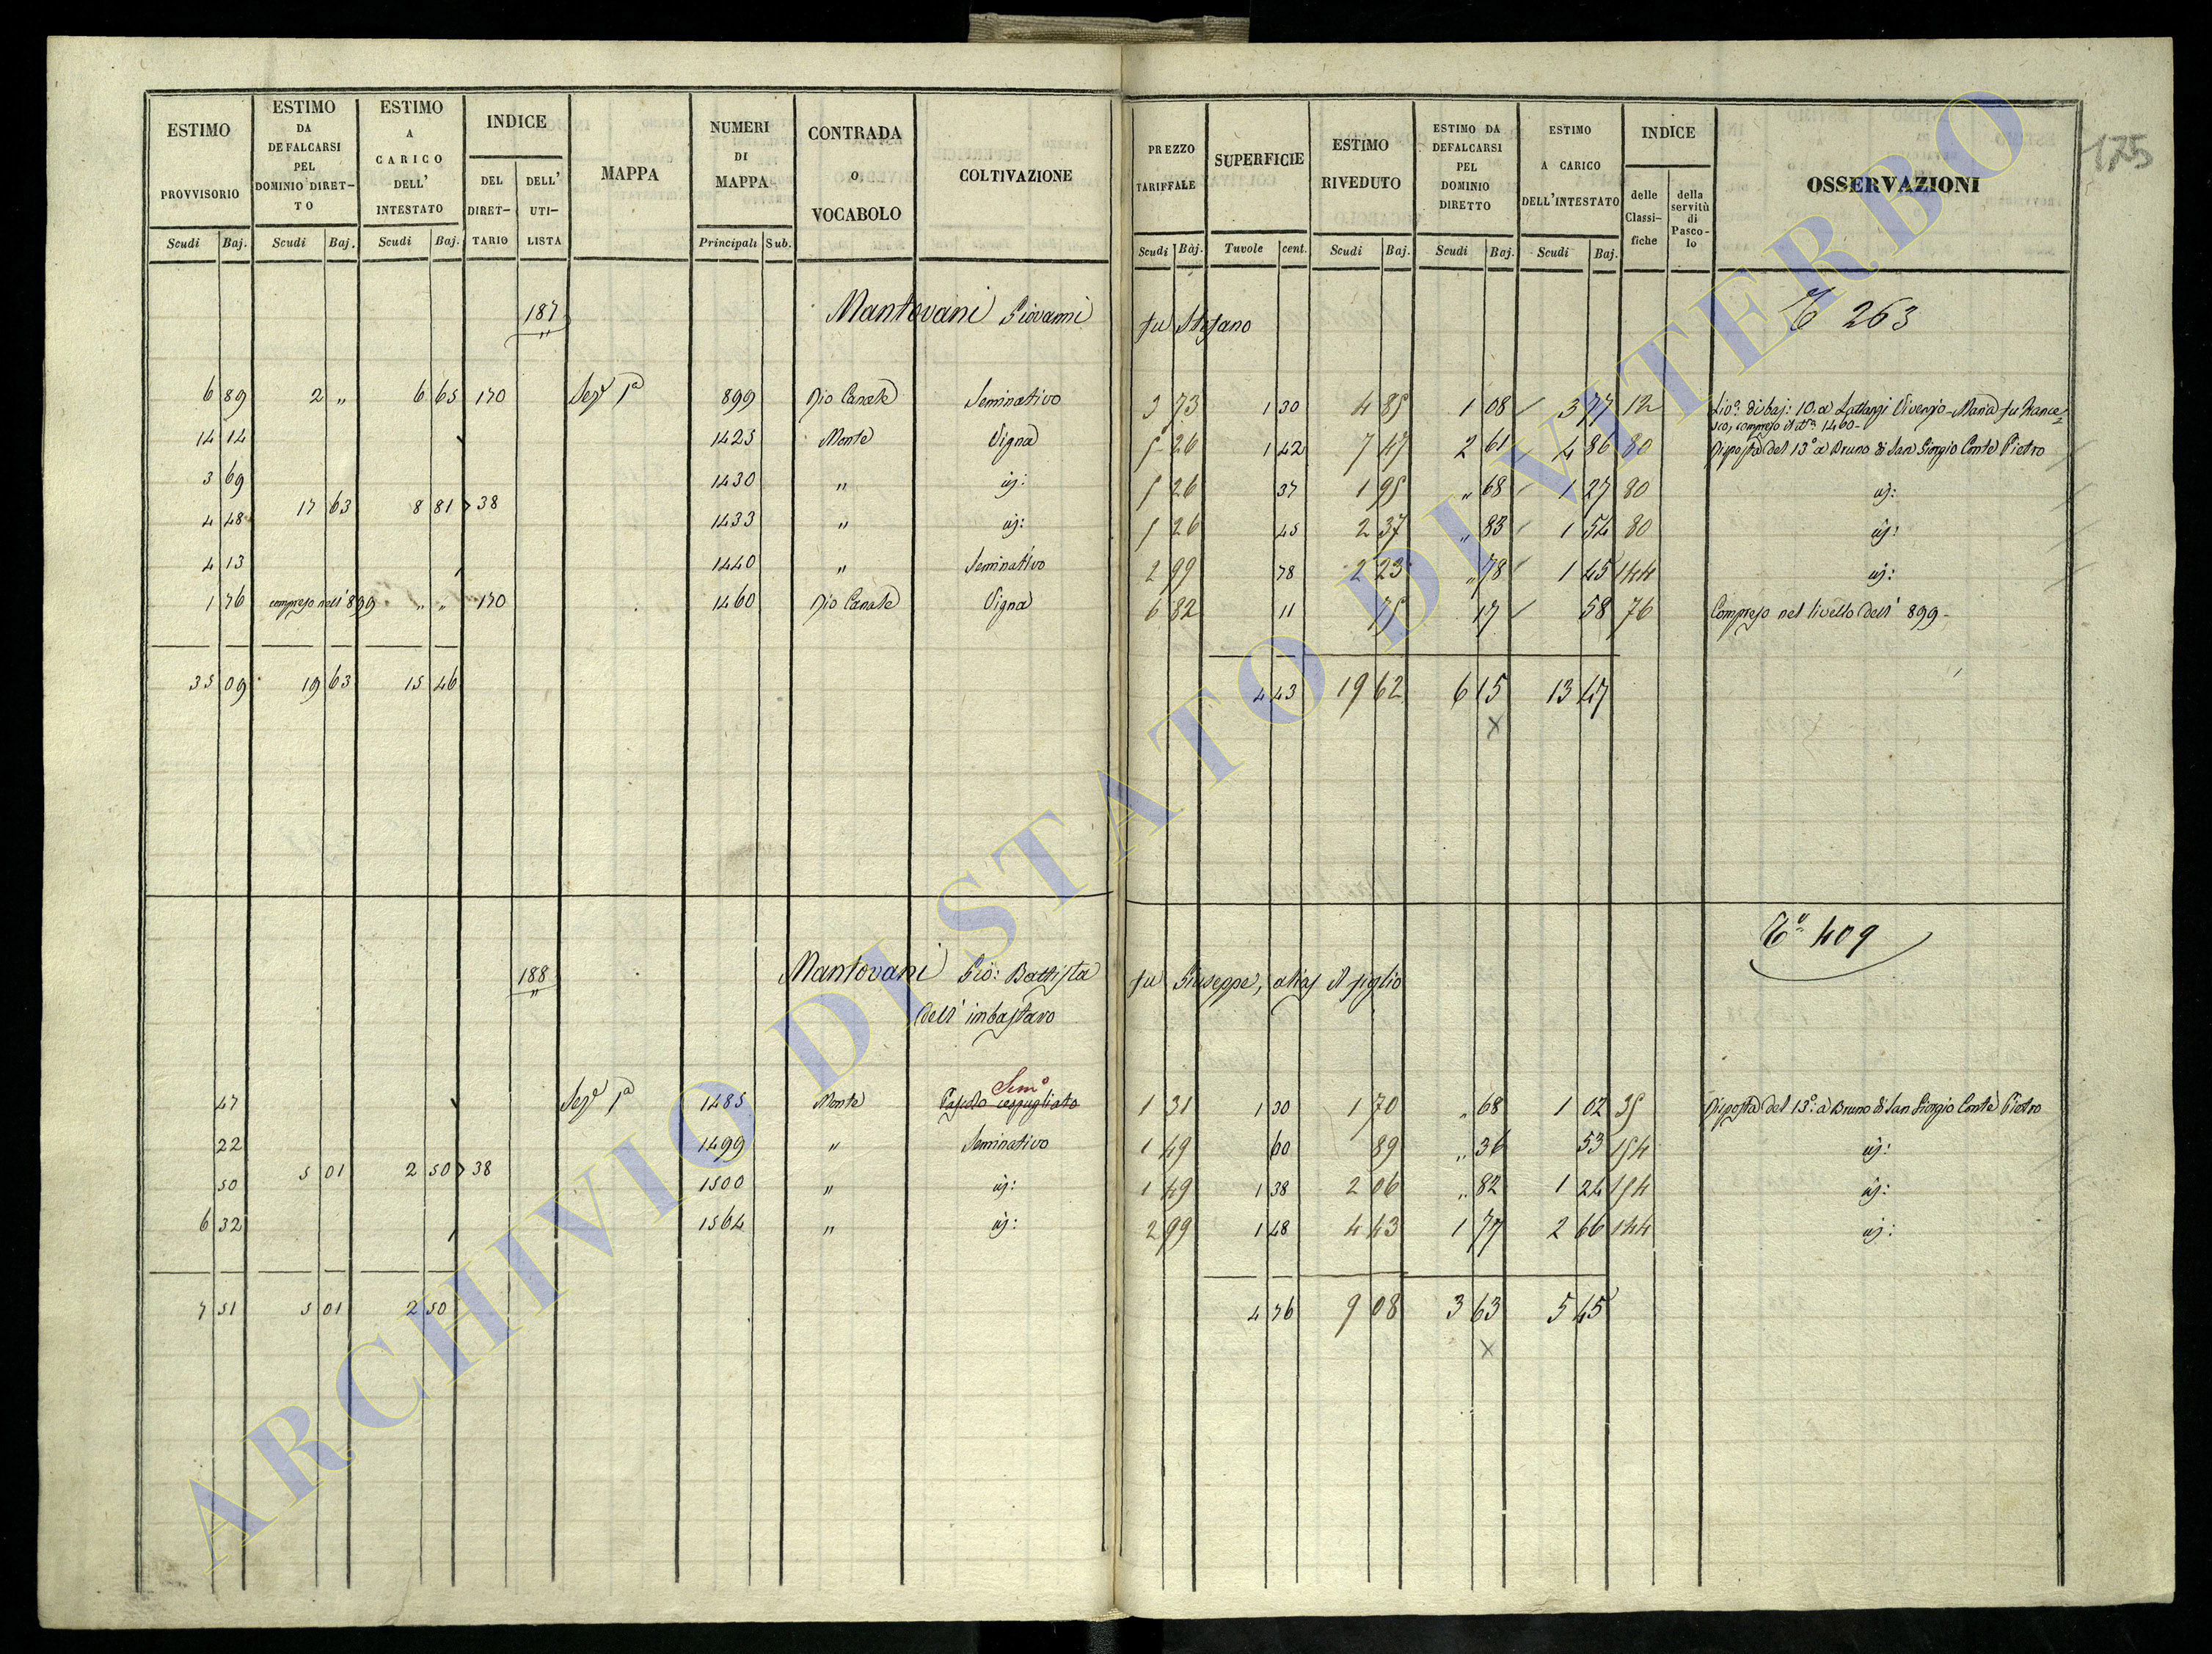 175
ESTIMO PROVVISORIO Scudi Baj.
ESTIMO DA DEFALCARSI PEL DOMINIO DIRETTO Scudi Baj.
ESTIMO A CARICO DELL' INTESTATO Scudi Baj.
INDICE DEL DIRETTARIO DELL' UTILISTA
MAPPA
NUMERI DI MAPPA Principali Sub.
CONTRADA O VOCABOLO
COLTIVAZIONE
PREZZO TARIFFALE Scudi Baj.
SUPERFICIE Tavole cent.
ESTIMO RIVEDUTO Scudi Baj.
ESTIMO DA DEFALCARSI PEL DOMINIO DIRETTO Scudi Baj.
ESTIMO A CARICO DELL'INTESTATO Scudi Baj.
INDICE delle Classifiche della servitù di Pascolo
OSSERVAZIONI
187 Mantovani Giovanni fu Stefano 263
6 89 2 " 6 65 170 Sez.e 1a 899 Rio Canale Seminativo 3 73 1 30 4 85 1 08 3 77 12 Livo: di baj: 10. a Lattanzi Vivenzio-Maria fu Frances
co, compreso il No 1460-
14 14 1423 Monte Vigna 5 26 1 42 7 47 2 61 4 86 80 Risposta del 13° a Bruno di San Giorgio Conte Pietro
3 69 1430 " id: 5 26 37 1 95 " 68 1 27 80 id:
17 63 8 81 38
4 48 1433 " id: 5 26 45 2 37 " 83 1 54 80 id:
4 13 1440 " Seminativo 2 99 78 2 23 " 78 1 45 144 id:
1 76 compreso nell' 899 " " 170 1460 Rio Canale Vigna 6 82 11 75 17 58 76 Compreso nel livello dell' 899-
35 09 19 63 15 46 4 43 19 62 6 15 13 47
x
188 Mantovani Gio: Battista fu Giuseppe, alias il figlio No 409
dell' imbastaro
Semo
47 Sez.e 1a 1485 Monte Pascolo cespugliato 1 31 1 30 1 70 " 68 1 02 35 Risposta del 13°: a Bruno di San Giorgio Conte Pietro
22 1499 " Seminativo 1 49 60 89 " 36 53 154 id:
5 01 2 50 38
50 1500 " id: 1 49 1 38 2 06 " 82 1 24 154 id:
6 32 1564 " id: 2 99 1 48 4 43 1 77 2 66 144 id:
7 51 5 01 2 50 4 76 9 08 3 63 5 45
x
ARCHIVIO DI STATO DI VITERBO